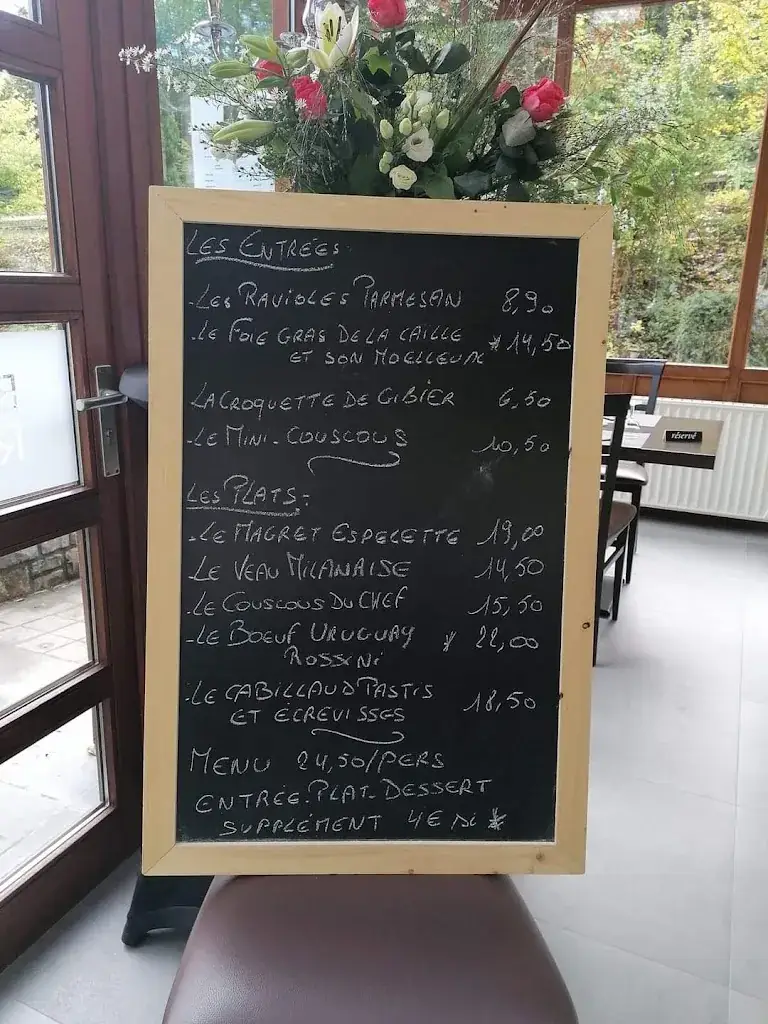 LES ENTRÉES:
-LES RAVIOLES PARMESAN 8,90
-LE FOIE GRAS DE LA CAILLE * 14,50
ET SON MOELLEUX
LA CROQUETTE DE GIBIER 6,50
-LE MINI-COUSCOUS 10,50
LES PLATS:
-LE MAGRET ESPELETTE 19,00
-LE VEAU MILANAISE 14,50
-LE COUSCOUS DU CHEF 15,50
-LE BOEUF URUGUAY * 22,00
ROSSINI
-LE CABILLAUD PASTIS 18,50
ET ECREVISSES
MENU 24,50/PERS
ENTRÉE-PLAT-DESSERT
SUPPLÉMENT 4€ si *
réservé